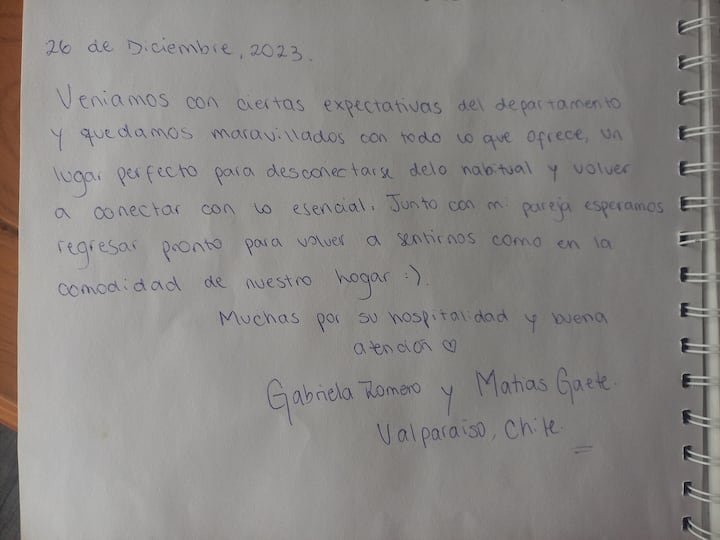 26 de Diciembre, 2023.
Veniamos con ciertas expectativas del departamento
y quedamos maravillados con todo lo que ofrece, un
lugar perfecto para desconectarse delo habitual y volver
a conectar con lo esencial. Junto con mi pareja esperamos
regresar pronto para volver a sentirnos como en la
comodidad de nuestro hogar :).
Muchas por su hospitalidad y buena
atención ♡
Gabriela Romero y Matias Gaete.
Valparaiso, Chile.